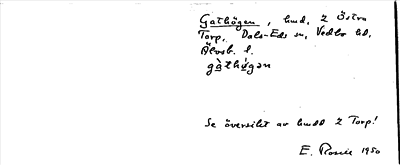 Gathögen, hmd, 2 Östra
Torp, Dals-Eds sn, Vedbo hd,
Älvsb. l.
gàthø̀gən
Se översikt av hmdd 2 Torp!
E. Rosén 1950